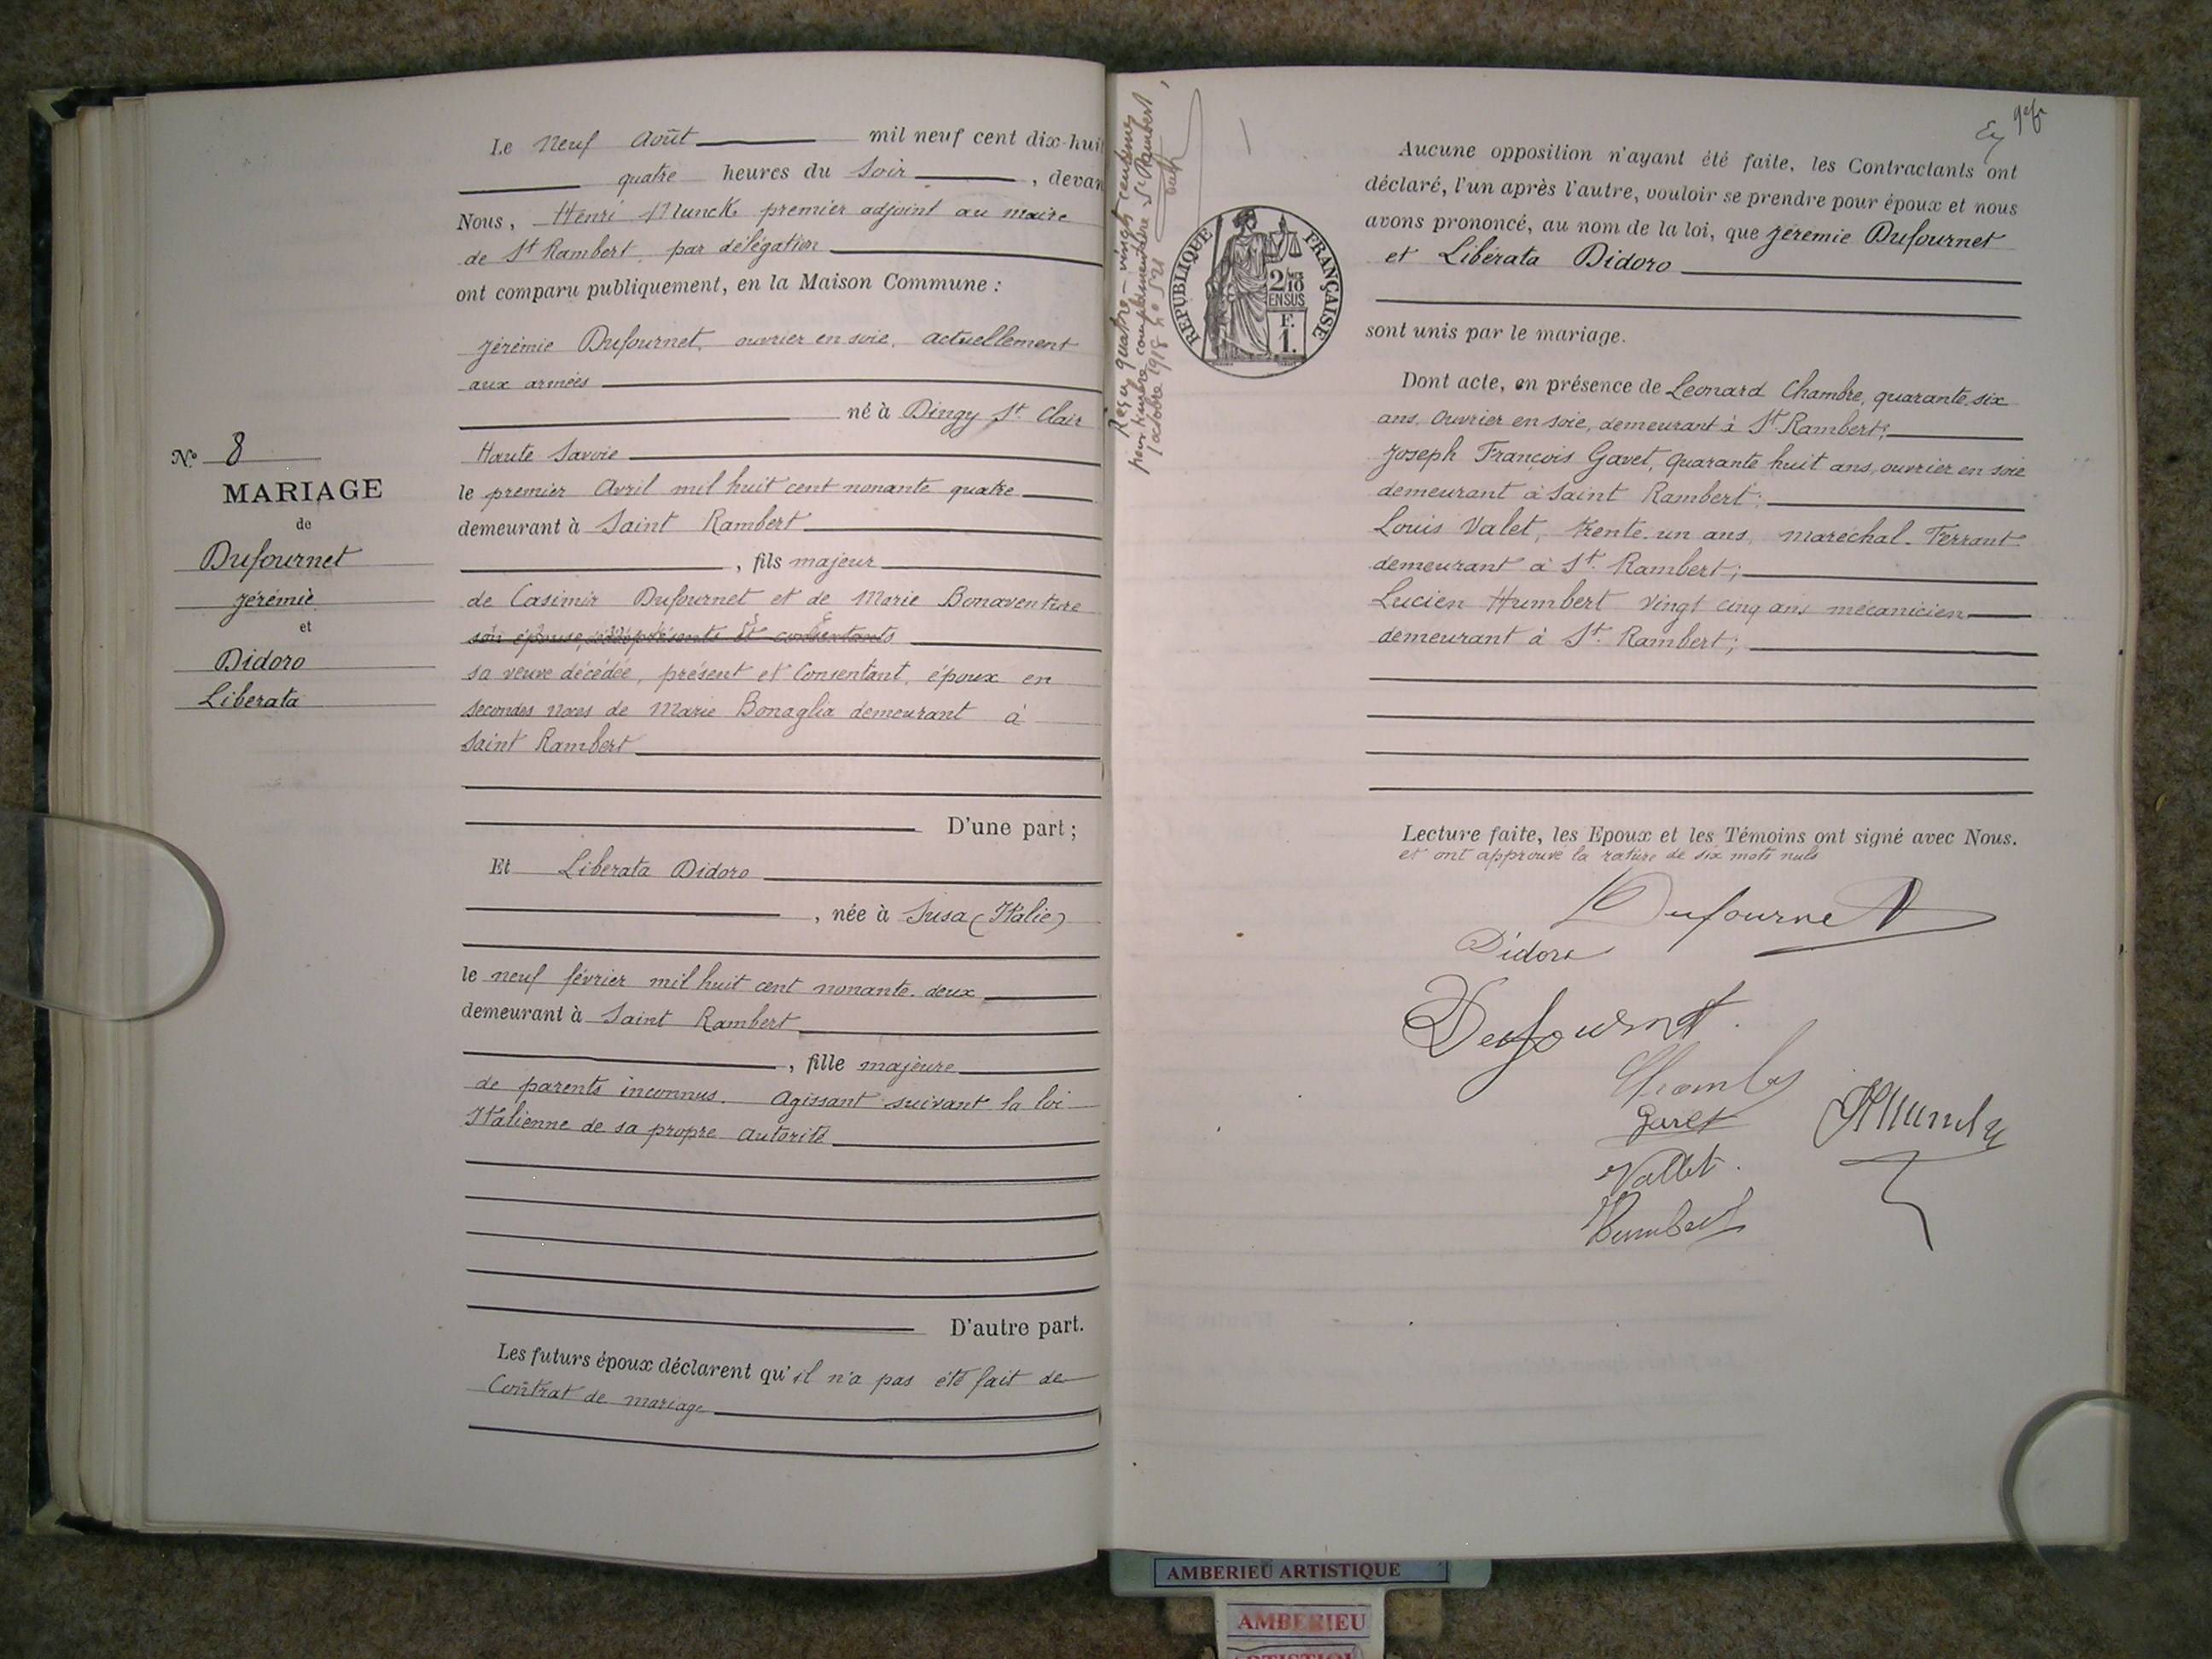 Le Neuf Août mil neuf cent dix-hui
quatre heures du Soir , devan
Nous, Henri Munck premier adjoint au maire
de St Rambert par délégation
ont comparu publiquement, en la Maison Commune :
Jérémie Dufournet, ouvrier en soie, actuellement
aux armées
né à Dingy St. Clair
Haute Savoie
le premier Avril mil huit cent nonante quatre
demeurant à Saint Rambert
, fils majeur
de Casimir Dufournet et de Marie Bonaventure
son épouse, présents et consentants
sa veuve décédée, présent et Consentant, époux en
secondes noces de Marie Bonaglia demeurant à
Saint Rambert
D'une part ;
Et Liberata Didoro
, née à Susa (Italie)
le neuf février mil huit cent nonante-deux
demeurant à Saint Rambert
, fille majeure
de parents inconnus. Agissant suivant la loi
Italienne de sa propre autorité
D'autre part.
Les futurs époux déclarent qu'il n'a pas été fait de
Contrat de mariage
N° 8
MARIAGE
de
Dufournet
Jérémie
et
Didoro
Liberata
Reçu quatre-vingts centimes
pour timbre complémentaire St Rambert,
octobre 1918 n° 521
RÉPUBLIQUE FRANÇAISE
2/10
EN SUS
F.
1.
Aucune opposition n'ayant été faite, les Contractants ont
déclaré, l'un après l'autre, vouloir se prendre pour époux et nous
avons prononcé, au nom de la loi, que Jérémie Dufournet
et Libérata Didoro
sont unis par le mariage.
Dont acte, en présence de Leonard Chambre, quarante-six
ans, Ouvrier en soie, demeurant à St. Rambert;
Joseph François Gavet, Quarante huit ans, ouvrier en soie
demeurant à Saint Rambert;
Louis Valet, trente-un ans, maréchal-Ferrant
demeurant à St. Rambert;
Lucien Humbert vingt cinq ans mécanicien
demeurant à St. Rambert;
Lecture faite, les Epoux et les Témoins ont signé avec Nous.
et ont approuvé la rature de six mots nuls
Dufournet
Didoro
Dufournet
Chambre
Gavet
HMunck
Vallet
Humbert
AMBERIEU ARTISTIQUE
AMBERIEU